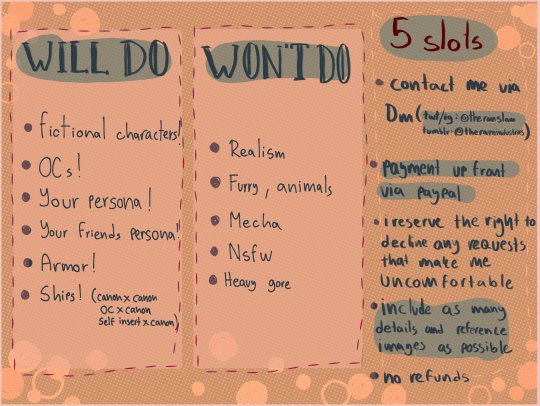 WILL DO
Fictional characters!
OCs!
Your persona!
Your friends persona!
Armor!
Ships! (canon x canon
OC x canon
Self insert x canon)
WON'T DO
Realism
Furry, animals
Mecha
Nsfw
Heavy gore
5 slots
contact me via
Dm (twt/ig: @theramslam
tumblr: @theramindustries)
payment up front
via paypal
i reserve the right to
decline any requests
that make me
uncomfortable
include as many
details and reference
images as possible
no refunds